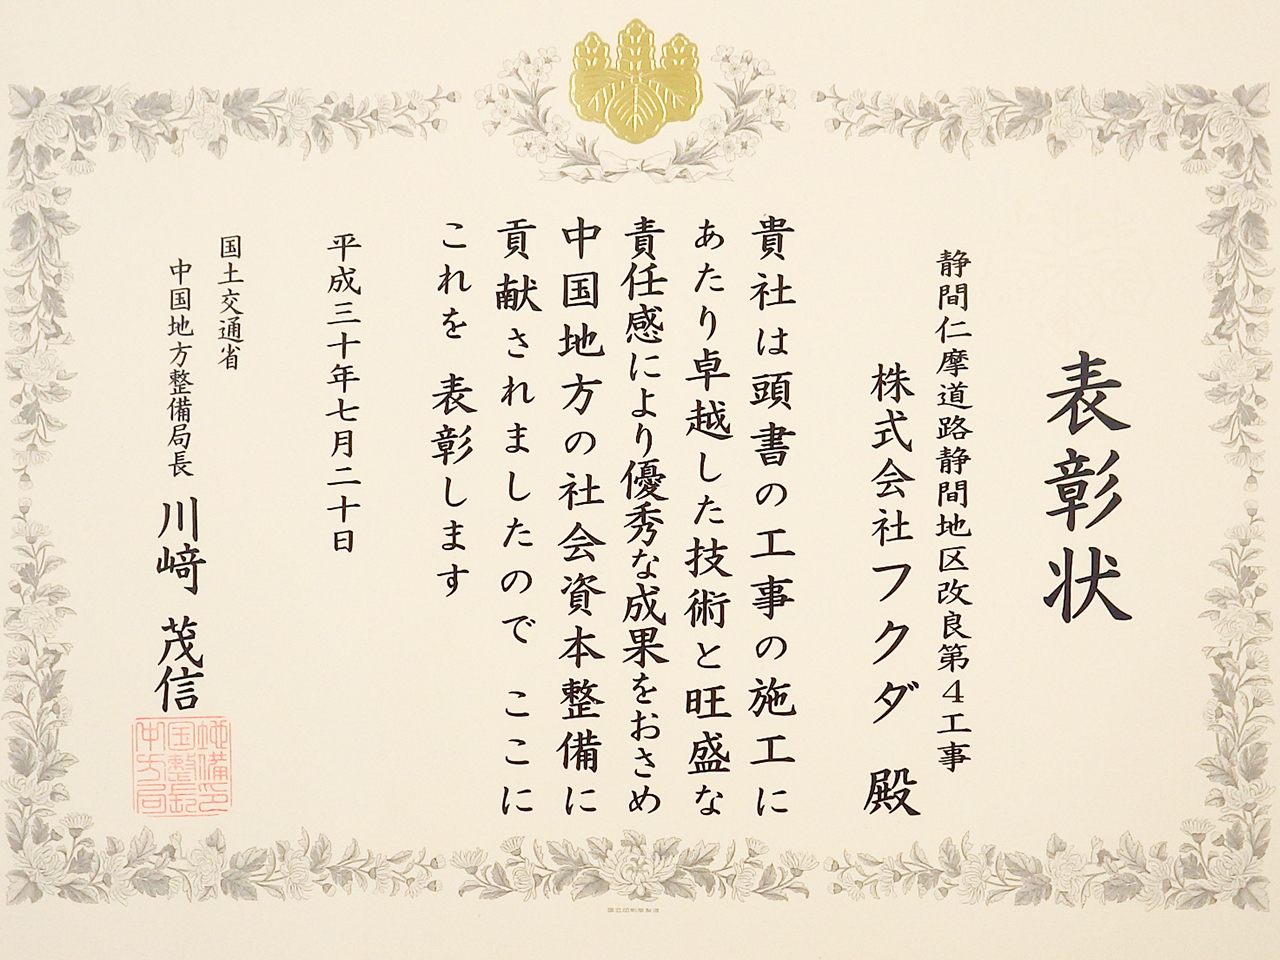 表彰状
静間仁摩道路静間地区改良第4工事
株式会社フクダ 殿
貴社は頭書の工事の施工に
あたり卓越した技術と旺盛な
責任感により優秀な成果をおさめ
中国地方の社会資本整備に
貢献されましたので ここに
これを 表彰します
平成三十年七月二十日
国土交通省
中国地方整備局長 川﨑 茂信